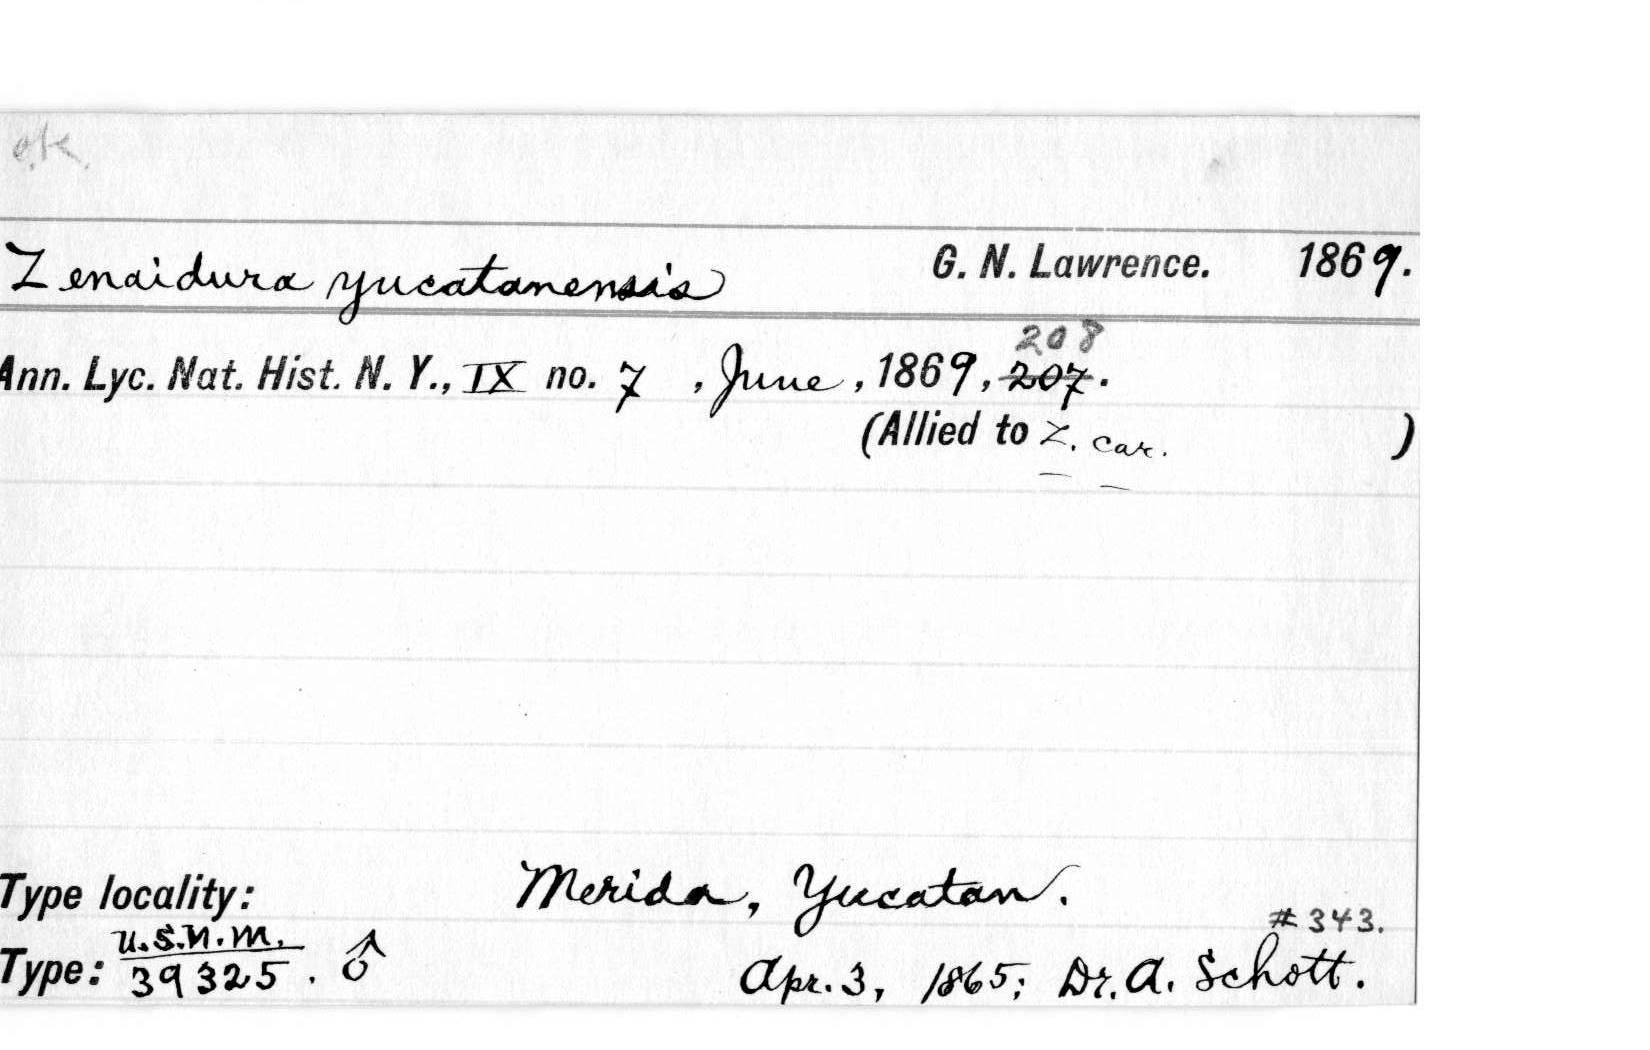 o.k.
Zenaidura yucatanensis G. N. Lawrence. 1869.
208
Ann. Lyc. Nat. Hist. N. Y., IX no. 7 , June, 1869, 207.
(Allied to Z. car. )
Type locality: Merida, Yucatan.
#343.
Type: U.S.N.M. 39325. ♂ Apr. 3, 1865; Dr. A. Schott.